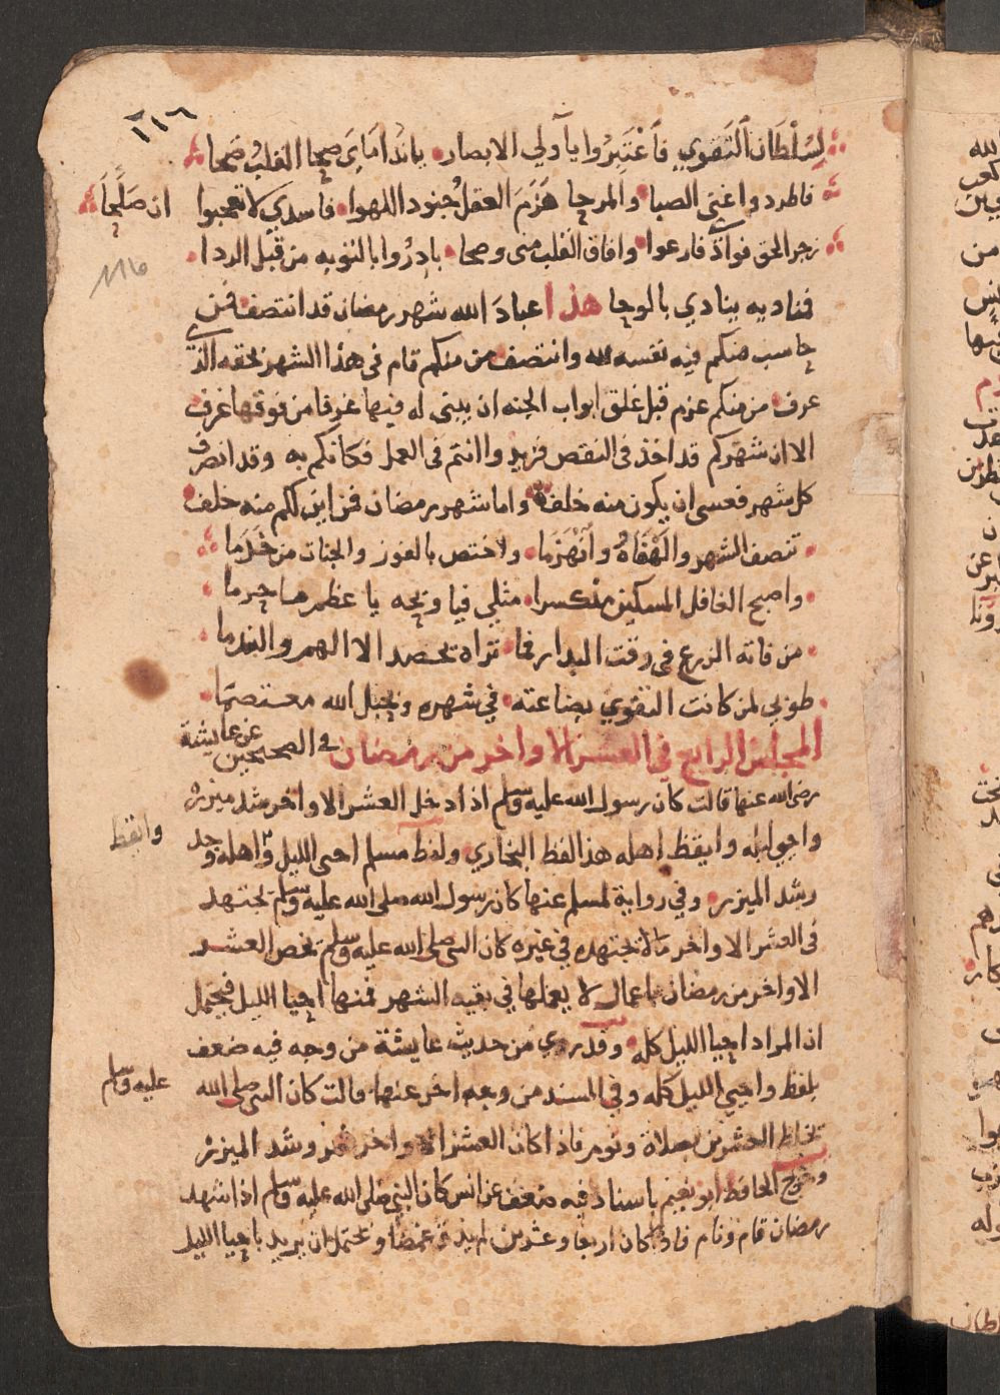 ١١٦
لسلطان التقوي فاعتبروا يا اولي الابصار يا نداماي صحا القلب صحا
فاطردوا عني الصبا والمرحا هزم العقل جنود اللهوا فاسدي لا تعجبوا ان صلحا
زجر الحق فوادي فارعوا وافاق القلب مني وصحا بادروا بالتوبه من قبل الردا
فمناديه ينادي بالوحا هذا عباد الله شهر رمضان قد انتصف فمن
حاسب منكم فيه نفسه لله وانتصف من منكم قام في هذا الشهر بحقه الذي
عرف من منكم عزم قبل غلق ابواب الجنه ان يبنى له فيها غرفا من فوقها غرف
الا ان شهركم قد اخذ في النقص فزيدوا انتم في العمل فكانكم به وقد انصرف
كل شهر فعسى ان يكون منه خلفة واما شهر رمضان فمن اين لكم منه خلف
تنصف الشهر والهفاه وانهزما واختص بالفوز والجنات من خدما
واصبح الغافل المسكين منكسرا مثلي فيا ويحه يا عظم ما حرما
من فاته الزرع في وقت البدار فما تراه يحصد الا الهم والندما
طوبي لمن كانت التقوي بضاعته في شهره وبحبل الله معتصما
المجلس الرابع في العشر الاواخر من رمضان في الصحيحين عن عايشة
رضي الله عنها قالت كان رسول الله عليه وسلم اذا دخل العشر الاواخر شد ميزره
واحيي ليله وايقظ اهله هذا لفظ البخاري ولفظ مسلم احيى الليل واهله وجد
وايقظ
وشد الميزر وفي رواية لمسلم عنها كان رسول الله صلى الله عليه وسلم يجتهد
في العشر الاواخر ما لا يجتهده في غيره كان النبي صلى الله عليه وسلم يخص العشر
الاواخر من رمضان باعمال لا يعملها في بقيه الشهر فمنها احيا الليل فيحتمل
ان المراد احيا الليل كله وقد روي من حديث عايشة من وجه فيه ضعف
بلفظ واحيي الليل كله وفي المسند من وجه اخر عنها قالت كان النبي صلى الله عليه وسلم
يخلط العشرين بصلاة ونوم فاذا كان العشر الاواخر شمر وشد الميزر
وخرج الحافظ ابو نعيم باسناد فيه ضعف عن انس كان النبي صلى الله عليه وسلم اذا شهد
رمضان قام ونام فاذا كان اربعا وعشرين لم يذق غمضا ويحتمل ان يريد باحيا الليل